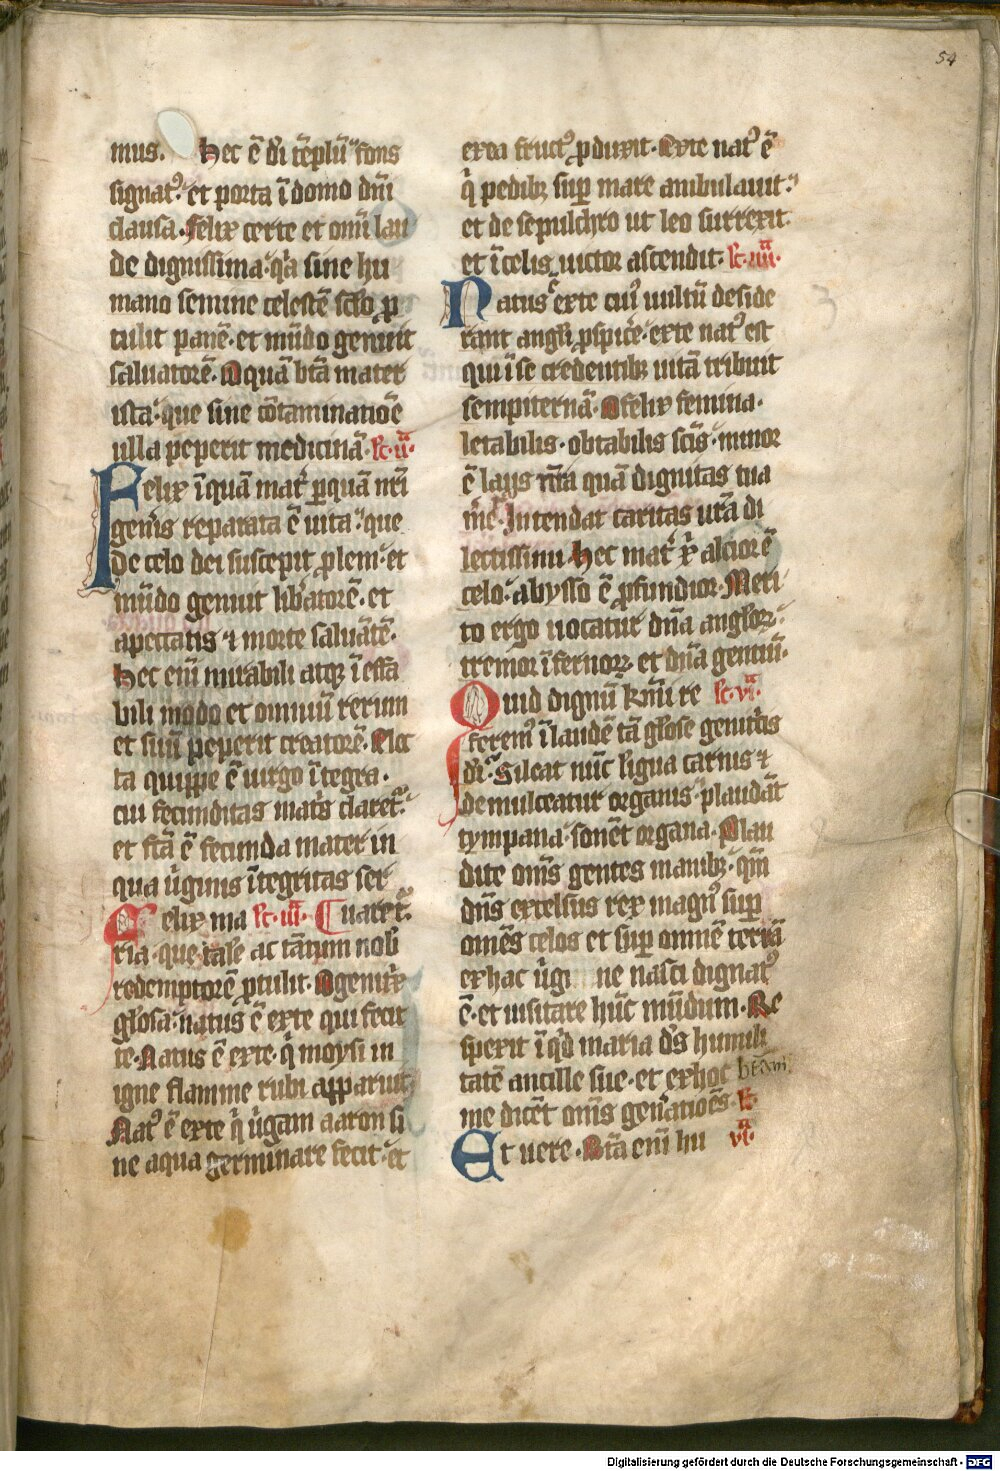 54
mus. Hec ē di tēplū fons
signatꝰ et porta ī domo dñi
clausa. Felix certe et omī lau
de dignissima. qͥa sine hu
mano semine celestē sclo ꝓ
tulit panē. et mūdo genuit
saluatorē. O quā btā mater
ista. que sine cōtaminatiōe
ulla peperit medicinā. lc. ii.
Felix īquā matͬ ꝑquā nrī
genͥs reparata ē uita. que
de celo dei suscepit ꝓlem. et
mūdo genuit libatorē. et
apeccatis ⁊ morte saluātē.
Hec enī mirabili atqꝫ ī effa
bili modo et omniū rerum
et suū peperit creatorē. Elec
ta quippe ē uirgo ītegra.
cui fecunditas matͥs claret.
et ftā ē fecunda mater in
qua uͥginis ītegritas ser
Felix ma lc. iii. uaret.
ria. que tale ac tātum nobͥ
redemptorē ꝓtulit. O genitͥx
glosa. natus ē exte qui fecit
te. Natus ē exte. qͥ moysi in
igne flamme rubi apparuit.
Natꝰ ē exte qͥ uͥgam aaron si
ne aqua germinare fecit. et
exea fructꝰ ꝓduxit. Exte natꝰ ē
qͥ pedibꝫ suꝑ mare ambulauit.
et de sepulchro ut leo surrexit.
et ī celis uictor ascendit. lc. iiii.
Natus exte cuiꝰ uultū deside
rant angli ꝓspicͤe. exte natꝰ est
qui ī se credentibꝫ uitā tribuit
sempiternā. O felix femina.
letabilis. obtabilis scīs. minor
ē laus nrā quā dignitas tua
mͤe. Intendat caritas urā di
lectissimi. Hec matͬ xͥ alcior ē
celo. abysso ē ꝓfundior. Meri
to ergo uocatur dña angloꝝ.
tremor īfernoꝝ. et dña gentiū.
Quid dignū kͣmi re lc. vi.
feremꝰ ī laudē tā glose genitͥcis
di. Sileat nūc ligua carnis ⁊
demulceatur organis. plaudāt
tympana. sonēt organa. Plau
dite oms gentes manibꝫ. qm̄
dn̄s excelsus rex magnꝰ suꝑ
omēs celos et suꝑ omnē terrā
exhac uͥgi ne nasci dignatꝰ
ē. et uisitare hūc mūdum. Re
spexit ī qͥd maria ds humili
tatē ancille sue. et exhoc btām
me dicēt oms genatioēs. R.
Et uere. Btā enī hu vi.
Digitalisierung gefördert durch die Deutsche Forschungsgemeinschaft - DFG